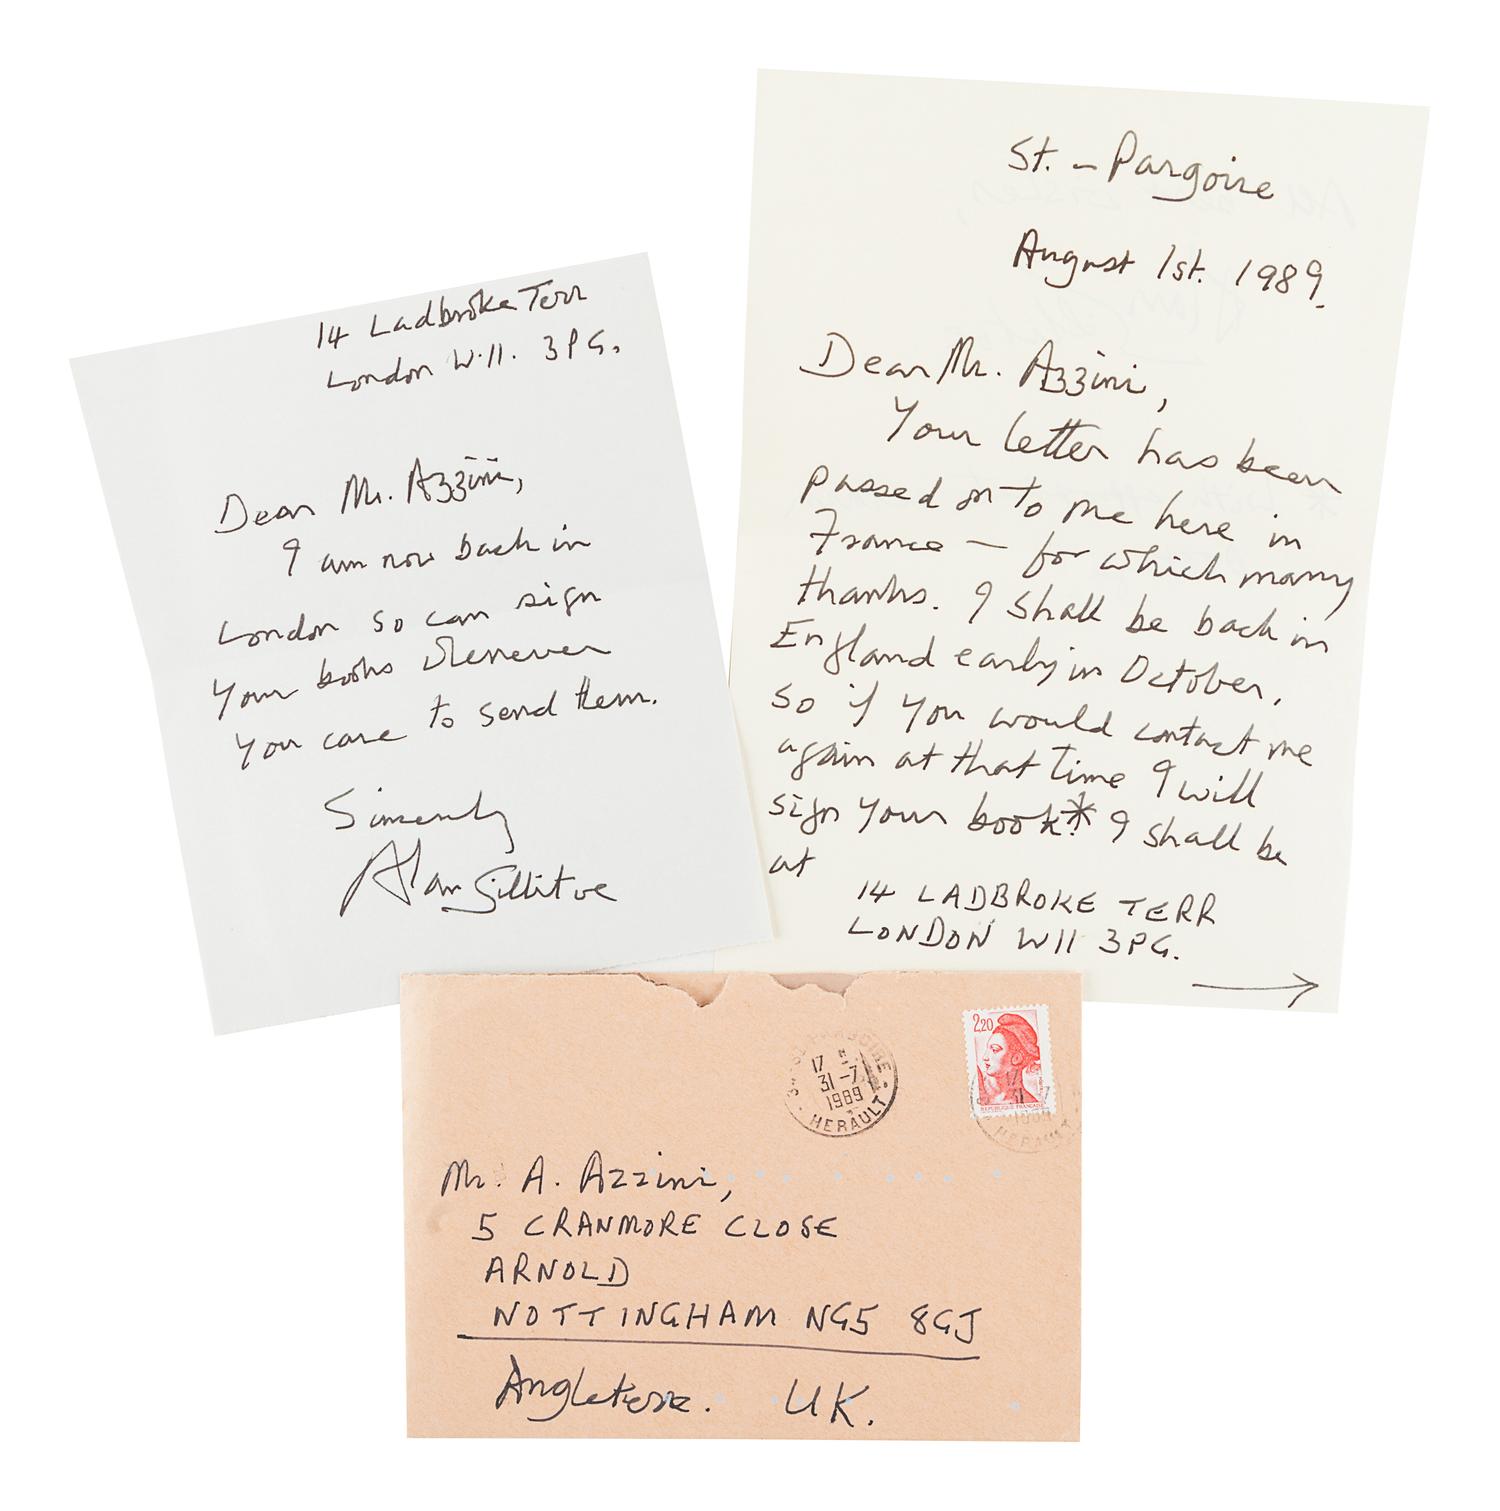 14 Ladbroke Terr
London W.11. 3PG.
Dear Mr. Azzini,
I am now back in
London so can sign
your books whenever
you care to send them.
Sincerely
Alan Sillitoe
St. - Pargoire
August 1st. 1989.
Dear Mr. Azzini,
Your letter has been
passed on to me here in
France — for which many
thanks. I shall be back in
England early in October,
so if you would contact me
again at that time I will
sign your book*. I shall be
at
14 LADBROKE TERR
LONDON W11 3PG.
→
ST PARGOIRE
17 H
31-7
1989
HERAULT
2,20
REPUBLIQUE FRANÇAISE
17
31 7
1989
HERAULT
Mr. A. Azzini,
5 CRANMORE CLOSE
ARNOLD
NOTTINGHAM NG5 8GJ
Angleterre. UK.